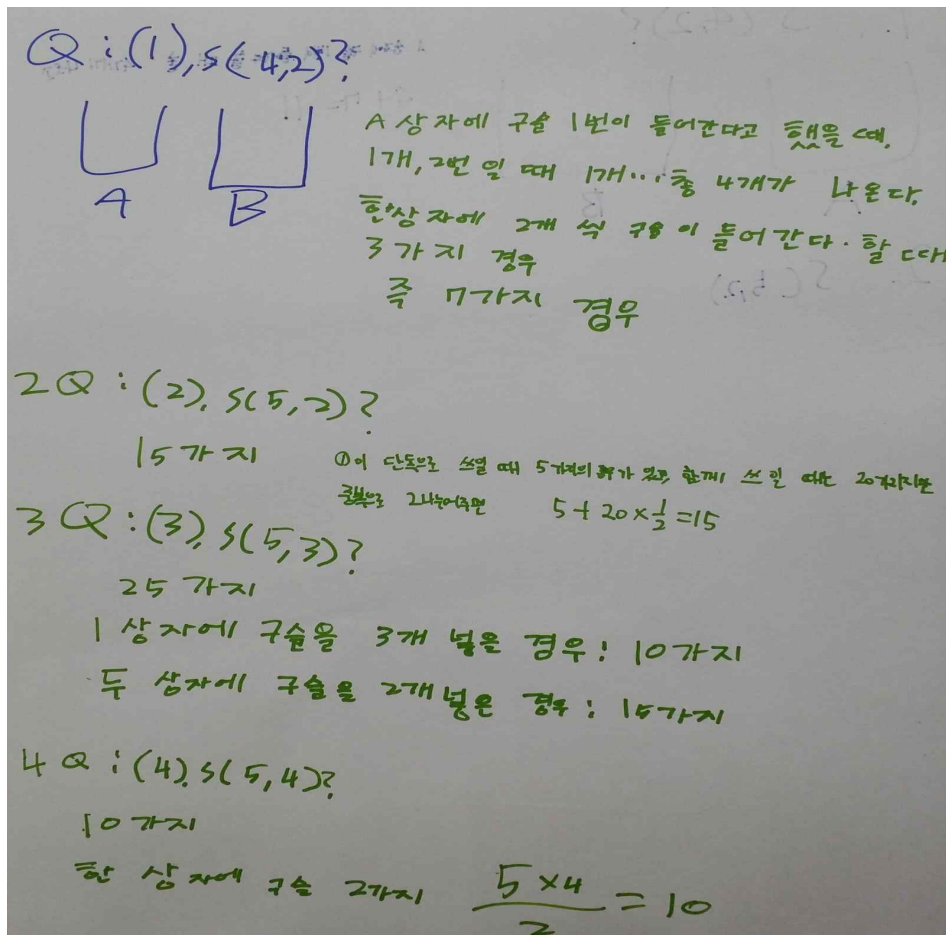 Q : (1), S(4,2)?
A B
A 상자에 구슬 1번이 들어간다고 했을 때,
1개, 2번 일 때 1개... 총 4개가 나온다.
한상자에 2개 씩 구슬이 들어 간다. 할 때
3가지 경우
즉 7가지 경우
2Q : (2), S(5,2)?
15가지
①이 단독으로 쓰일 때 5가지의 가 있고, 함께 쓰일 때는 20가지지만
중복으로 2나누어주면 5+20×1/2=15
3Q : (3), S(5,3)?
25가지
1 상자에 구슬을 3개 넣을 경우 : 10가지
두 상자에 구슬을 2개 넣은 경우 : 15가지
4Q : (4), S(5,4)?
10가지
한 상자에 구슬 2가지 5×4/2 = 10